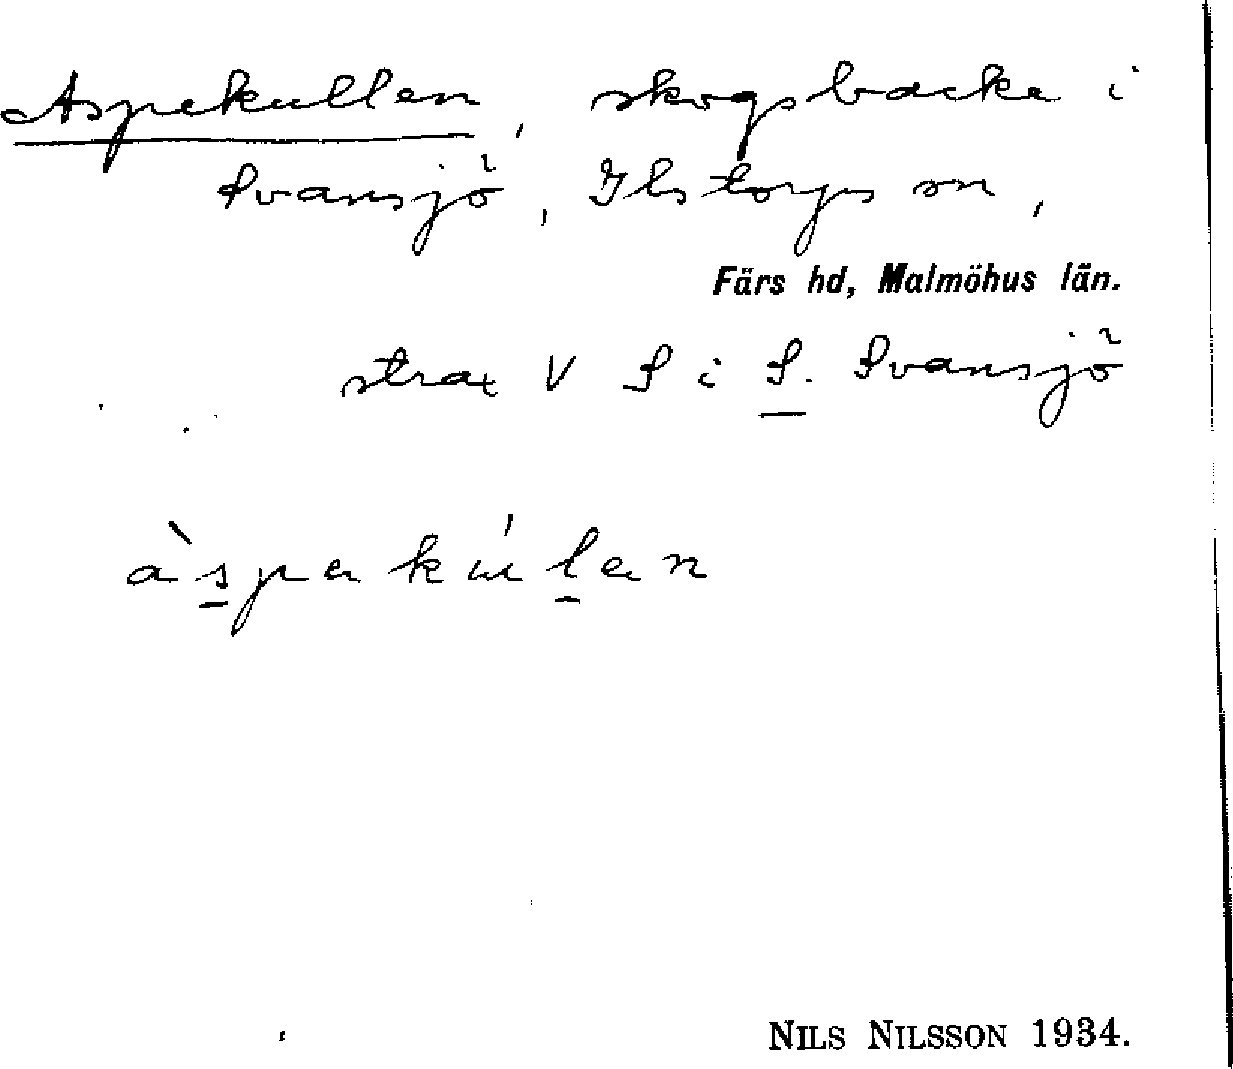 Aspekullen, skogsbacke i
Svansjö, Ilstorps sn,
Färs hd, Malmöhus län.
strax V S i S. Svansjö
àspekúlen
NILS NILSSON 1934.